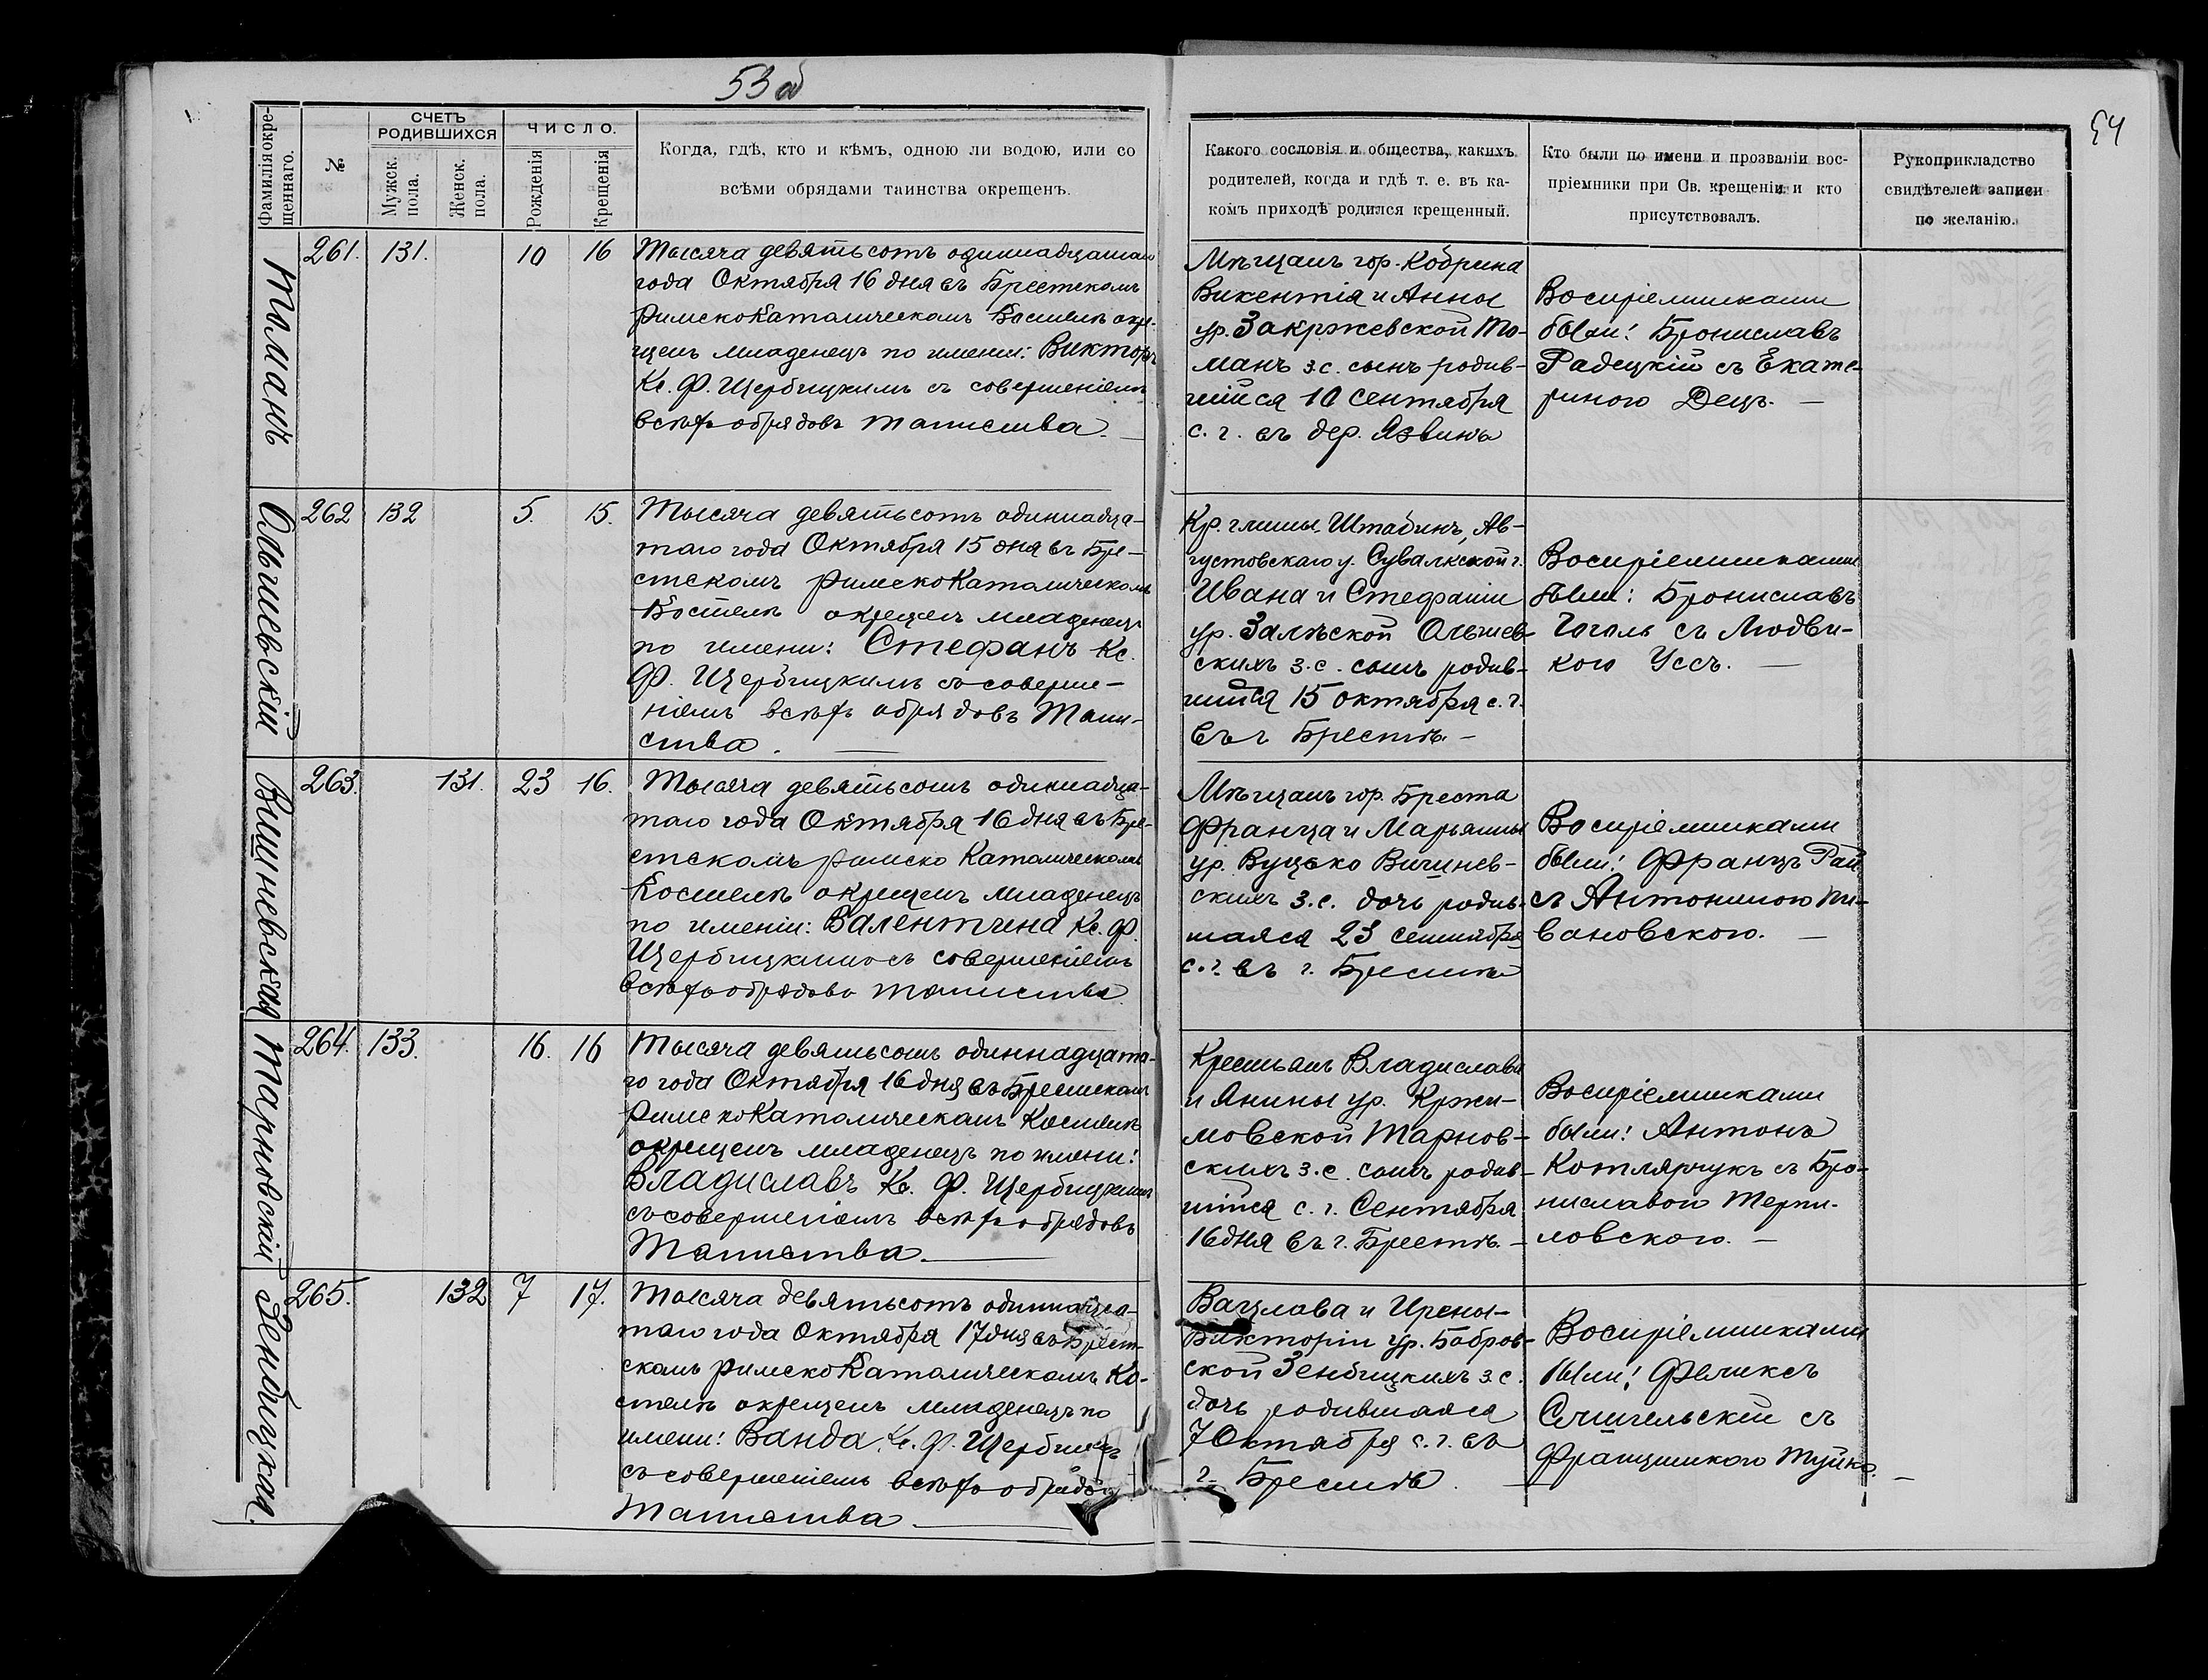 53об
54
Фамилія окре-
щеннаго.
№
СЧЕТЪ
РОДИВШИХСЯ
Мужск.
пола.
Женск.
пола.
ЧИСЛО.
Рожденія
Крещенія
Когда, гдѣ, кто и кѣмъ, одною ли водою, или со
всѣми обрядами таинства окрещенъ.
Какого сословія и общества, какихъ
родителей, когда и гдѣ т. е. въ ка-
комъ приходѣ родился крещенный.
Кто были по имени и прозванію вос-
пріемники при Св. крещеніи и кто
присутствовалъ.
Рукоприкладство
свидѣтелей записи
по желанію.
Томанъ
261. 131. 10 16
Тысяча девятьсотъ одиннадцатаго
года Октября 16 дня въ Брестскомъ
РимскоКатолическомъ Костелѣ окре-
щенъ младенецъ по имени: Викторъ
Кс. Ф. Щербицкимъ съ совершеніемъ
всѣхъ обрядовъ таинства. —
Мѣщанъ гор. Кобрина
Викентія и Анны
ур. Закржевской То-
манъ з.с. сынъ родив-
шійся 10 Сентября
с. г. въ дер. Язвины
Воспріемниками
были: Брониславъ
Радецкій съ Екате-
риною Децъ. —
Ольшевскій
262 132 5. 15.
Тысяча девятьсотъ одиннадца-
таго года Октября 15 дня въ Бре-
стскомъ РимскоКатолическомъ
Костелѣ окрещенъ младенецъ
по имени: Стефанъ Кс.
Ф. Щербицкимъ съ соверше-
ніемъ всѣхъ обрядовъ Таин-
ства. —
Кр. гмины Штабинъ, Ав-
густовскаго у. Сувалкской г.
Ивана и Стефаніи
ур. Залѣской Ольшев-
скихъ з.с. сынъ родив-
шійся 15 октября с. г.
въ г Брестѣ. —
Воспріемниками
были: Брониславъ
Гоголь съ Людви-
кою Уссъ. —
Вишневская
263. 131. 23 16.
Тысяча девятьсотъ одиннадца-
таго года Октября 16 дня въ Бре-
стскомъ Римско Католическомъ
Костелѣ окрещенъ младенецъ
по имени: Валентина Кс. Ф.
Щербицкимъ съ совершеніемъ
всѣхъ обрядовъ таинства
Мѣщанъ гор. Бреста
Франца и Марьянны
ур. Вуцько Вишнев-
скихъ з.с. дочь родив-
шаяся 23 Сентября
с. г. въ г. Брестѣ
Воспріемниками
были: Францъ Рай
съ Антониною Пи-
вановскою. —
Тарновскій
264. 133. 16. 16
Тысяча девятьсотъ одиннадцата-
го года Октября 16 дня въ Брестскомъ
РимскоКатолическомъ Костелѣ
окрещенъ младенецъ по имени:
Владиславъ Кс. Ф. Щербицкимъ
съ совершеніемъ всѣхъ обрядовъ
Таинства. —
Крестьянъ Владислава
и Янины ур. Кржи-
мовской Тарнов-
скихъ з.с. сынъ родив-
шійся с. г. Сентября
16 дня въ г. Брестѣ. —
Воспріемниками
были: Антонъ
Котлярчукъ съ Бро-
ниславою Терпи-
ловскою. —
Зенбицкая.
265. 132 7 17.
Тысяча девятьсотъ одиннадца-
таго года Октября 17 дня въ Брест-
скомъ РимскоКатолическомъ Ко-
стелѣ окрещенъ младенецъ по
имени: Ванда Кс. Ф. Щербицкимъ
съ совершеніемъ всѣхъ обрядовъ
Таинства —
Вацлава и Ирены-
Викторіи ур. Бобров-
ской Зенбицкихъ з.с.
дочь родившаяся
7 Октября с. г. въ
г. Брестѣ.
Воспріемниками
были: Феликсъ
съ
Францишкою —